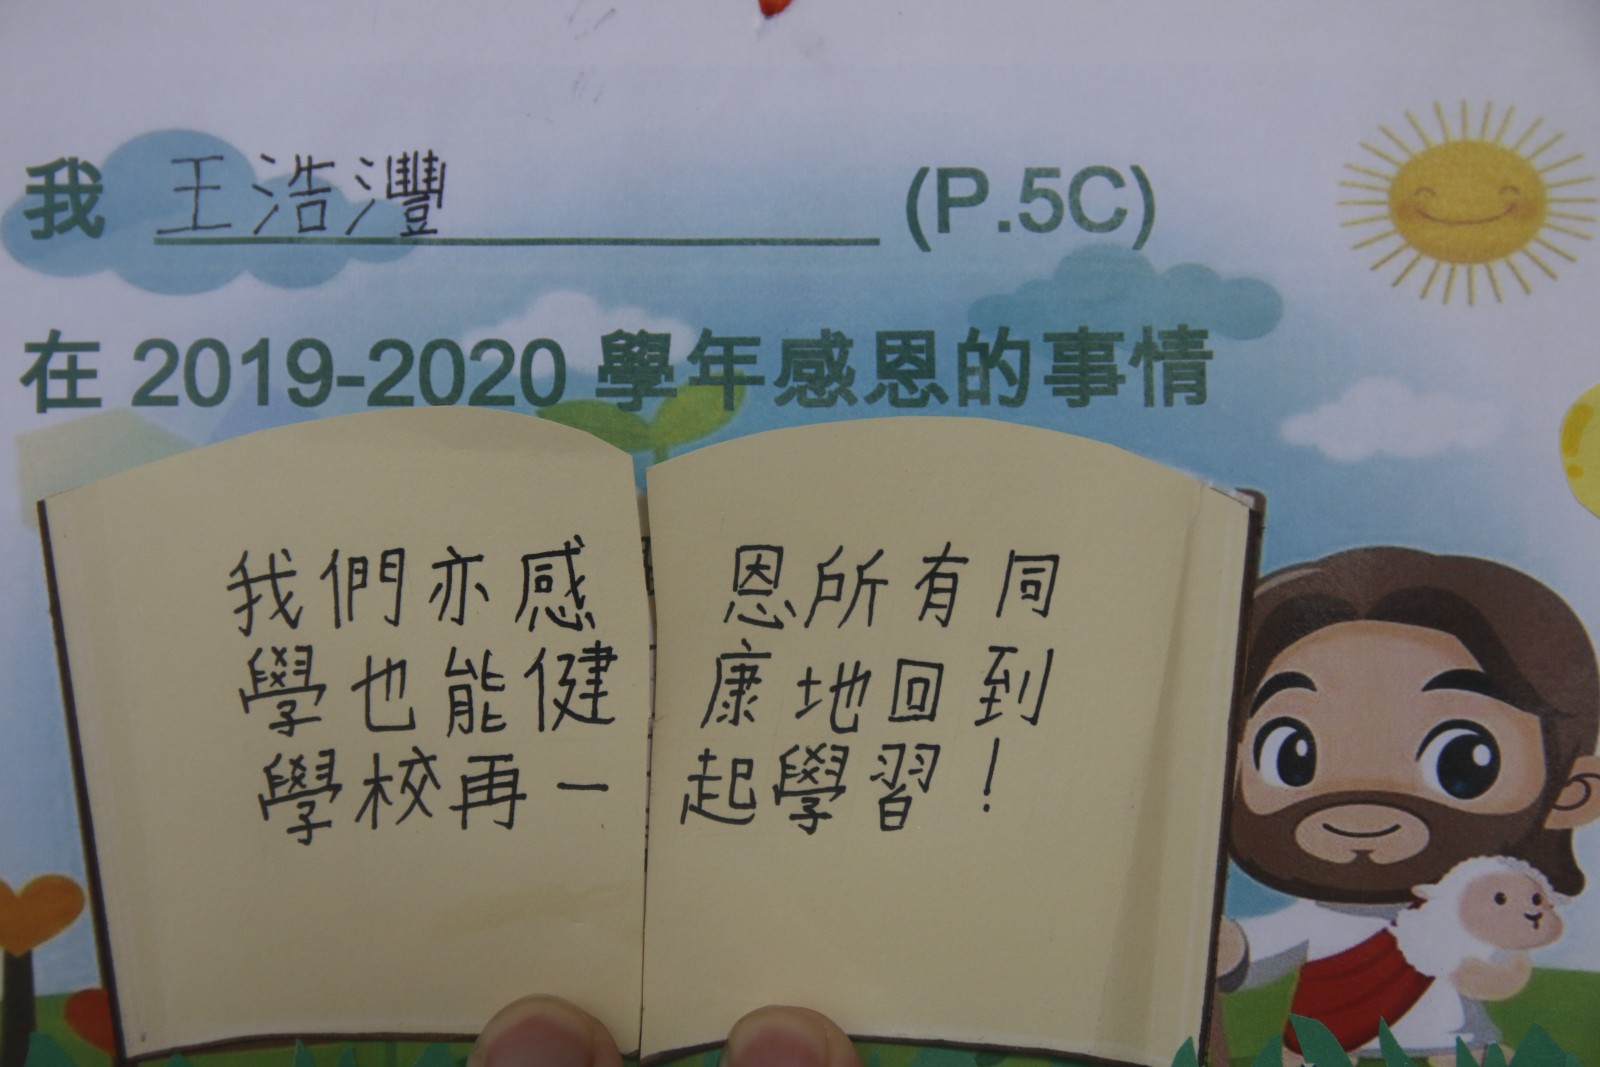 我 王浩灃 (P.5C)
在 2019-2020 學年感恩的事情
我們亦感恩所有同
學也能健康地回到
學校再一起學習！